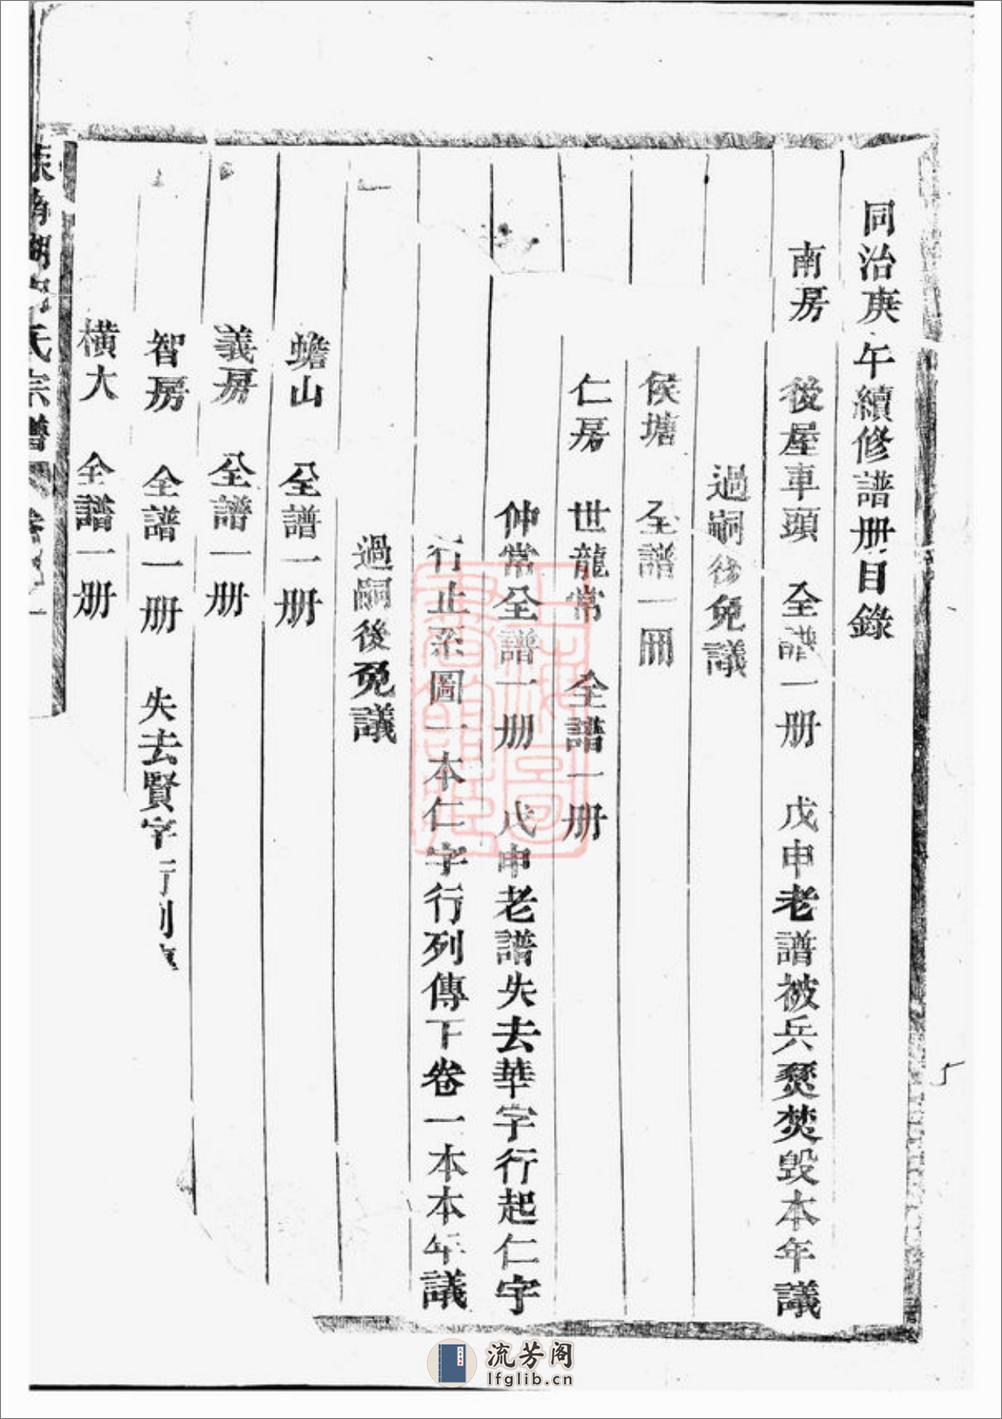 同治庚午續修譜册目錄
南房　後屋車頭　全譜一册　戊申老譜被兵燹焚毀本年議
過嗣後免議
侯塘　全譜一冊
仁房　世龍常　全譜一册
仲常全譜一册　戊申老譜失去華字行起仁字
行止系圖一本仁字行列傳下卷一本本年議
過嗣後免議
蟾山　全譜一册
義房　全譜一册
智房　全譜一册　失去賢字行列
橫大　全譜一册
氏宗譜
流芳阁
lfglib.cn